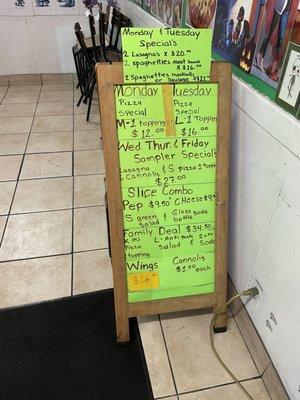 Monday & Tuesday
Special's
2 Lasagnas x $20.00
2 spaghetties meat sauce
x $16.00
2 Spaghetties meatballs
or sausage $22
Monday & Tuesday
Pizza Special
M-1 topping
$12.00
Pizza Special
L-1 Topping
$16.00
Wed, Thur & Friday
Sampler Special's
Lasagna & S pizza 1 topp
& Cannolis
$27.00
Slice Combo
Pep $9.50 Cheese $9
S green & Gloss soda
Salad bottle
Family Deal $34.50
Pizza
topping
L-Antipasto
Salad & Soda
Wings
$16
Cannolis
$1.00 each